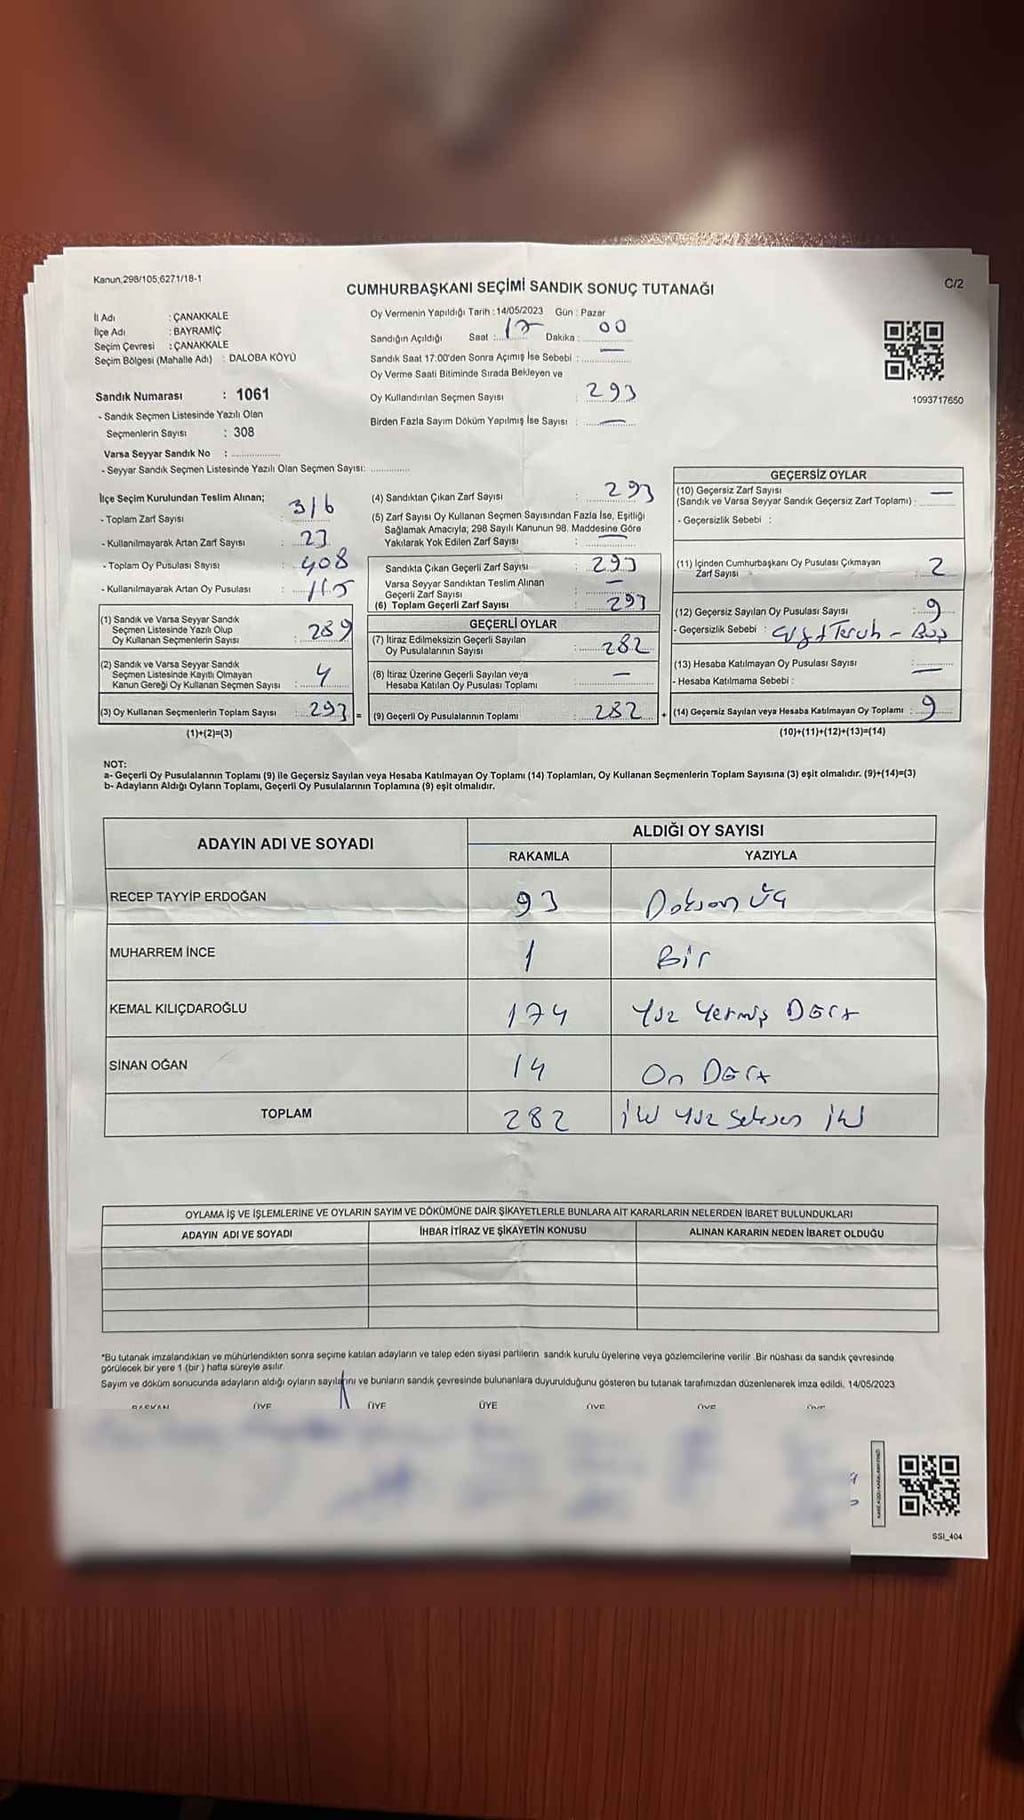 Kanun,298/105,6271/18-1
CUMHURBAŞKANI SEÇİMİ SANDIK SONUÇ TUTANAĞI
C/2
İl Adı : ÇANAKKALE
İlçe Adı : BAYRAMİÇ
Seçim Çevresi : ÇANAKKALE
Seçim Bölgesi (Mahalle Adı) : DALOBA KÖYÜ
Sandık Numarası : 1061
- Sandık Seçmen Listesinde Yazılı Olan
Seçmenlerin Sayısı : 308
Varsa Seyyar Sandık No :
- Seyyar Sandık Seçmen Listesinde Yazılı Olan Seçmen Sayısı:
Oy Vermenin Yapıldığı Tarih : 14/05/2023 Gün : Pazar
Sandığın Açıldığı Saat : 17 Dakika : 00
Sandık Saat 17:00'den Sonra Açımış İse Sebebi : —
Oy Verme Saati Bitiminde Sırada Bekleyen ve
Oy Kullandırılan Seçmen Sayısı : 293
Birden Fazla Sayım Döküm Yapılmış İse Sayısı : —
1093717650
İlçe Seçim Kurulundan Teslim Alınan;
- Toplam Zarf Sayısı : 316
- Kullanılmayarak Artan Zarf Sayısı : 23
- Toplam Oy Pusulası Sayısı : 408
- Kullanılmayarak Artan Oy Pusulası : 115
(1) Sandık ve Varsa Seyyar Sandık
Seçmen Listesinde Yazılı Olup
Oy Kullanan Seçmenlerin Sayısı : 289
(2) Sandık ve Varsa Seyyar Sandık
Seçmen Listesinde Kayıtlı Olmayan
Kanun Gereği Oy Kullanan Seçmen Sayısı : 4
(3) Oy Kullanan Seçmenlerin Toplam Sayısı : 293 =
(1)+(2)=(3)
(4) Sandıktan Çıkan Zarf Sayısı : 293
(5) Zarf Sayısı Oy Kullanan Seçmen Sayısından Fazla İse, Eşitliği
Sağlamak Amacıyla; 298 Sayılı Kanunun 98. Maddesine Göre
Yakılarak Yok Edilen Zarf Sayısı : —
Sandıkta Çıkan Geçerli Zarf Sayısı : 293
Varsa Seyyar Sandıktan Teslim Alınan
Geçerli Zarf Sayısı : —
(6) Toplam Geçerli Zarf Sayısı : 293
GEÇERLİ OYLAR
(7) İtiraz Edilmeksizin Geçerli Sayılan
Oy Pusulalarının Sayısı : 282
(8) İtiraz Üzerine Geçerli Sayılan veya
Hesaba Katılan Oy Pusulası Toplamı : —
(9) Geçerli Oy Pusulalarının Toplamı : 282 +
GEÇERSİZ OYLAR
(10) Geçersiz Zarf Sayısı
(Sandık ve Varsa Seyyar Sandık Geçersiz Zarf Toplamı) : —
- Geçersizlik Sebebi :
(11) İçinden Cumhurbaşkanı Oy Pusulası Çıkmayan
Zarf Sayısı : 2
(12) Geçersiz Sayılan Oy Pusulası Sayısı : 9
- Geçersizlik Sebebi : - Boş
(13) Hesaba Katılmayan Oy Pusulası Sayısı : —
- Hesaba Katılmama Sebebi :
(14) Geçersiz Sayılan veya Hesaba Katılmayan Oy Toplamı : 9
(10)+(11)+(12)+(13)=(14)
NOT:
a- Geçerli Oy Pusulalarının Toplamı (9) ile Geçersiz Sayılan veya Hesaba Katılmayan Oy Toplamı (14) Toplamları, Oy Kullanan Seçmenlerin Toplam Sayısına (3) eşit olmalıdır. (9)+(14)=(3)
b- Adayların Aldığı Oyların Toplamı, Geçerli Oy Pusulalarının Toplamına (9) eşit olmalıdır.
ADAYIN ADI VE SOYADI
ALDIĞI OY SAYISI
RAKAMLA YAZIYLA
RECEP TAYYİP ERDOĞAN 93 Doksan üç
MUHARREM İNCE 1 Bir
KEMAL KILIÇDAROĞLU 174 Yüz Yetmiş Dört
SİNAN OĞAN 14 On Dört
TOPLAM 282 iki yüz seksen iki
OYLAMA İŞ VE İŞLEMLERİNE VE OYLARIN SAYIM VE DÖKÜMÜNE DAİR ŞİKAYETLERLE BUNLARA AİT KARARLARIN NELERDEN İBARET BULUNDUKLARI
ADAYIN ADI VE SOYADI İHBAR İTİRAZ VE ŞİKAYETİN KONUSU ALINAN KARARIN NEDEN İBARET OLDUĞU
*Bu tutanak imzalandıktan ve mühürlendikten sonra seçime katılan adayların ve talep eden siyasi partilerin sandık kurulu üyelerine veya gözlemcilerine verilir .Bir nüshası da sandık çevresinde
görülecek bir yere 1 (bir ) hafta süreyle asılır.
Sayım ve döküm sonucunda adayların aldığı oyların sayılarını ve bunların sandık çevresinde bulunanlara duyurulduğunu gösteren bu tutanak tarafımızdan düzenlenerek imza edildi. 14/05/2023
BAŞKAN ÜYE ÜYE ÜYE ÜYE ÜYE ÜYE
SSI_404